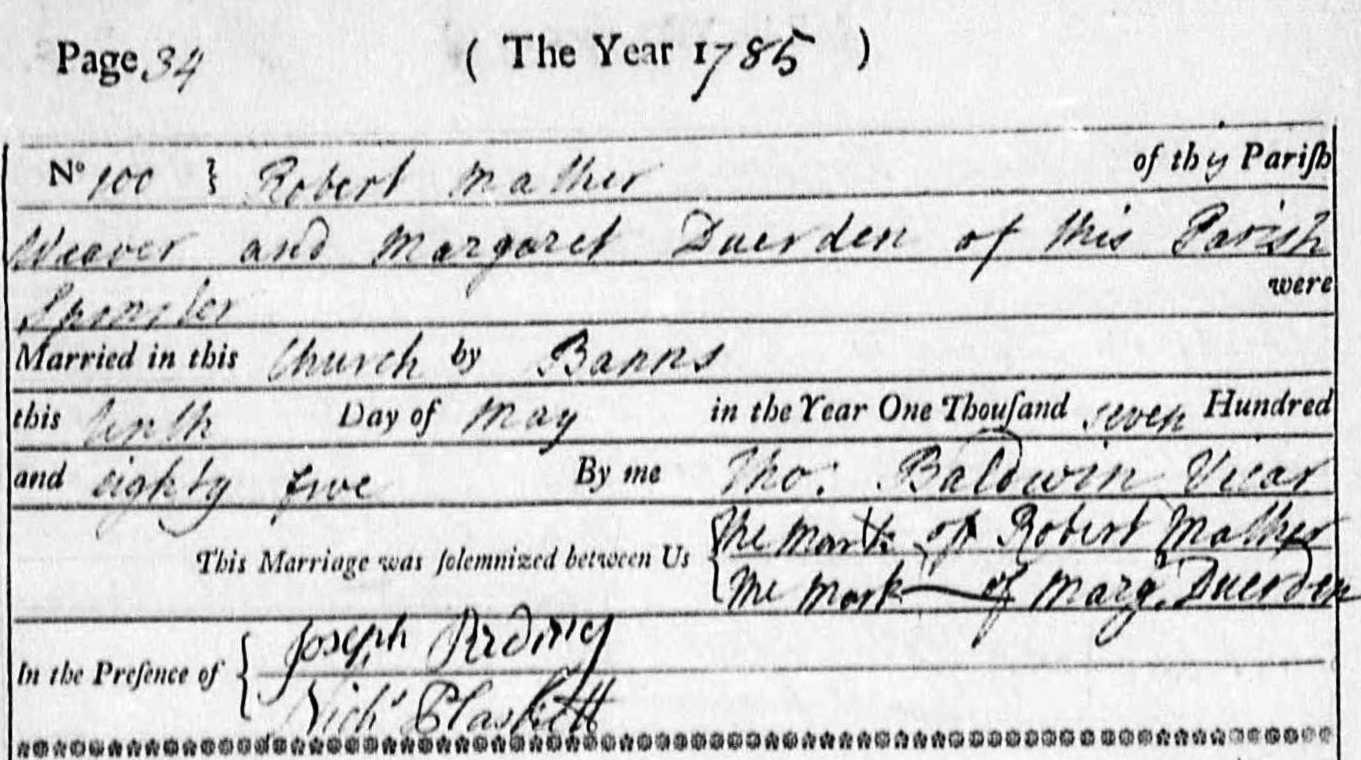 Page 34 ( The Year 1785 )
No 100 } Robert Mather of this Parish
Weaver and Margaret Duerden of this Parish
Spinster were
Married in this Church by Banns
this tenth Day of May in the Year One Thouſand seven Hundred
and eighty five By me Tho: Baldwin Vicar
This Marriage was ſolemnized between Us { The Mark X of Robert Mather
The Mark — of Marg. Duerden
In the Preſence of { Joseph
Nichs Plaskett